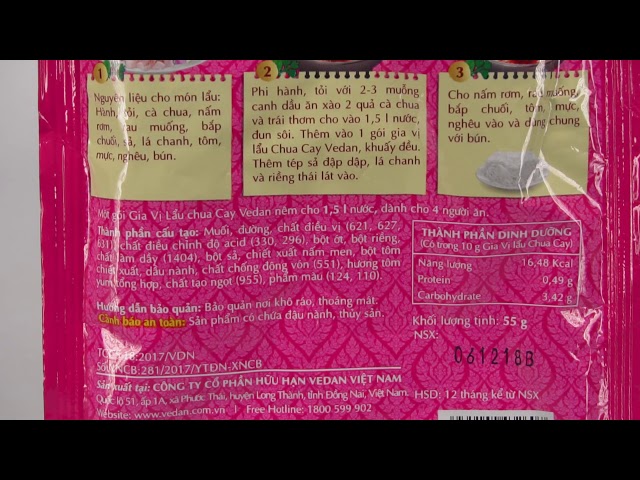 1
Nguyên liệu cho món lẩu:
Hành, tỏi, cà chua, nấm
rơm, rau muống, bắp
chuối, sả, lá chanh, tôm,
mực, nghêu, bún.
2
Phi hành, tỏi với 2-3 muỗng
canh dầu ăn xào 2 quả cà chua
và trái thơm cho vào 1,5 l nước,
đun sôi. Thêm vào 1 gói gia vị
lẩu Chua Cay Vedan, khuấy đều.
Thêm tép sả đập dập, lá chanh
và riềng thái lát vào.
3
Cho nấm rơm, rau muống,
bắp chuối, tôm, mực,
nghêu vào và dùng chung
với bún.
Một gói Gia Vị Lẩu chua Cay Vedan nêm cho 1,5 l nước, dành cho 4 người ăn.
Thành phần cấu tạo: Muối, đường, chất điều vị (621, 627,
631) chất điều chỉnh độ acid (330, 296), bột ớt, bột riềng,
chất làm dầy (1404), bột sả, chiết xuất nấm men, bột tôm
chiết xuất, dầu nành, chất chống đông vón (551), hương tôm
yum tổng hợp, chất tạo ngọt (955), phẩm màu (124, 110).
Hướng dẫn bảo quản: Bảo quản nơi khô ráo, thoáng mát.
Cảnh báo an toàn: Sản phẩm có chứa đậu nành, thủy sản.
THÀNH PHẦN DINH DƯỠNG
(Có trong 10 g Gia Vị lẩu Chua Cay)
Năng lượng 16,48 Kcal
Protein 0,49 g
Carbohydrate 3,42 g
Khối lượng tịnh: 55 g
NSX:
061218B
HSD: 12 tháng kể từ NSX
2017/VDN
281/2017/YTĐN-XNCB
Sản xuất tại: CÔNG TY CỔ PHẦN HỮU HẠN VEDAN VIỆT NAM
Quốc lộ 51, ấp 1A, xã Phước Thái, huyện Long Thành, tỉnh Đồng Nai, Việt Nam
Website: www.vedan.com.vn | Free Hotline: 1800 599 902